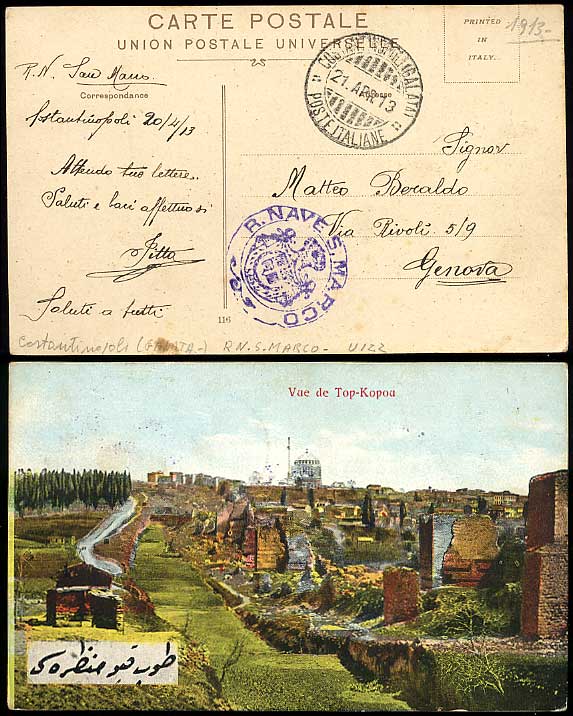 CARTE POSTALE
UNION POSTALE UNIVERSELLE
PRINTED
IN
ITALY.
1913-
25
R.N. San Marco
Correspondance
Costantinopoli 20/4/13
Attendo tue lettere..
Saluti e baci affettuosi
Saluti a tutti
COSTANTINOPOLI GALATA
21. APR. 13
POSTE ITALIANE
Adresse
Signor
Matteo Beraldo
Via Rivoli 5/9
Genova
R. NAVE S. MARCO
116
Costantinopoli (GALATA-) RN.S.MARCO- V122
Vue de Top-Kopou
طوب قپو منظره سى